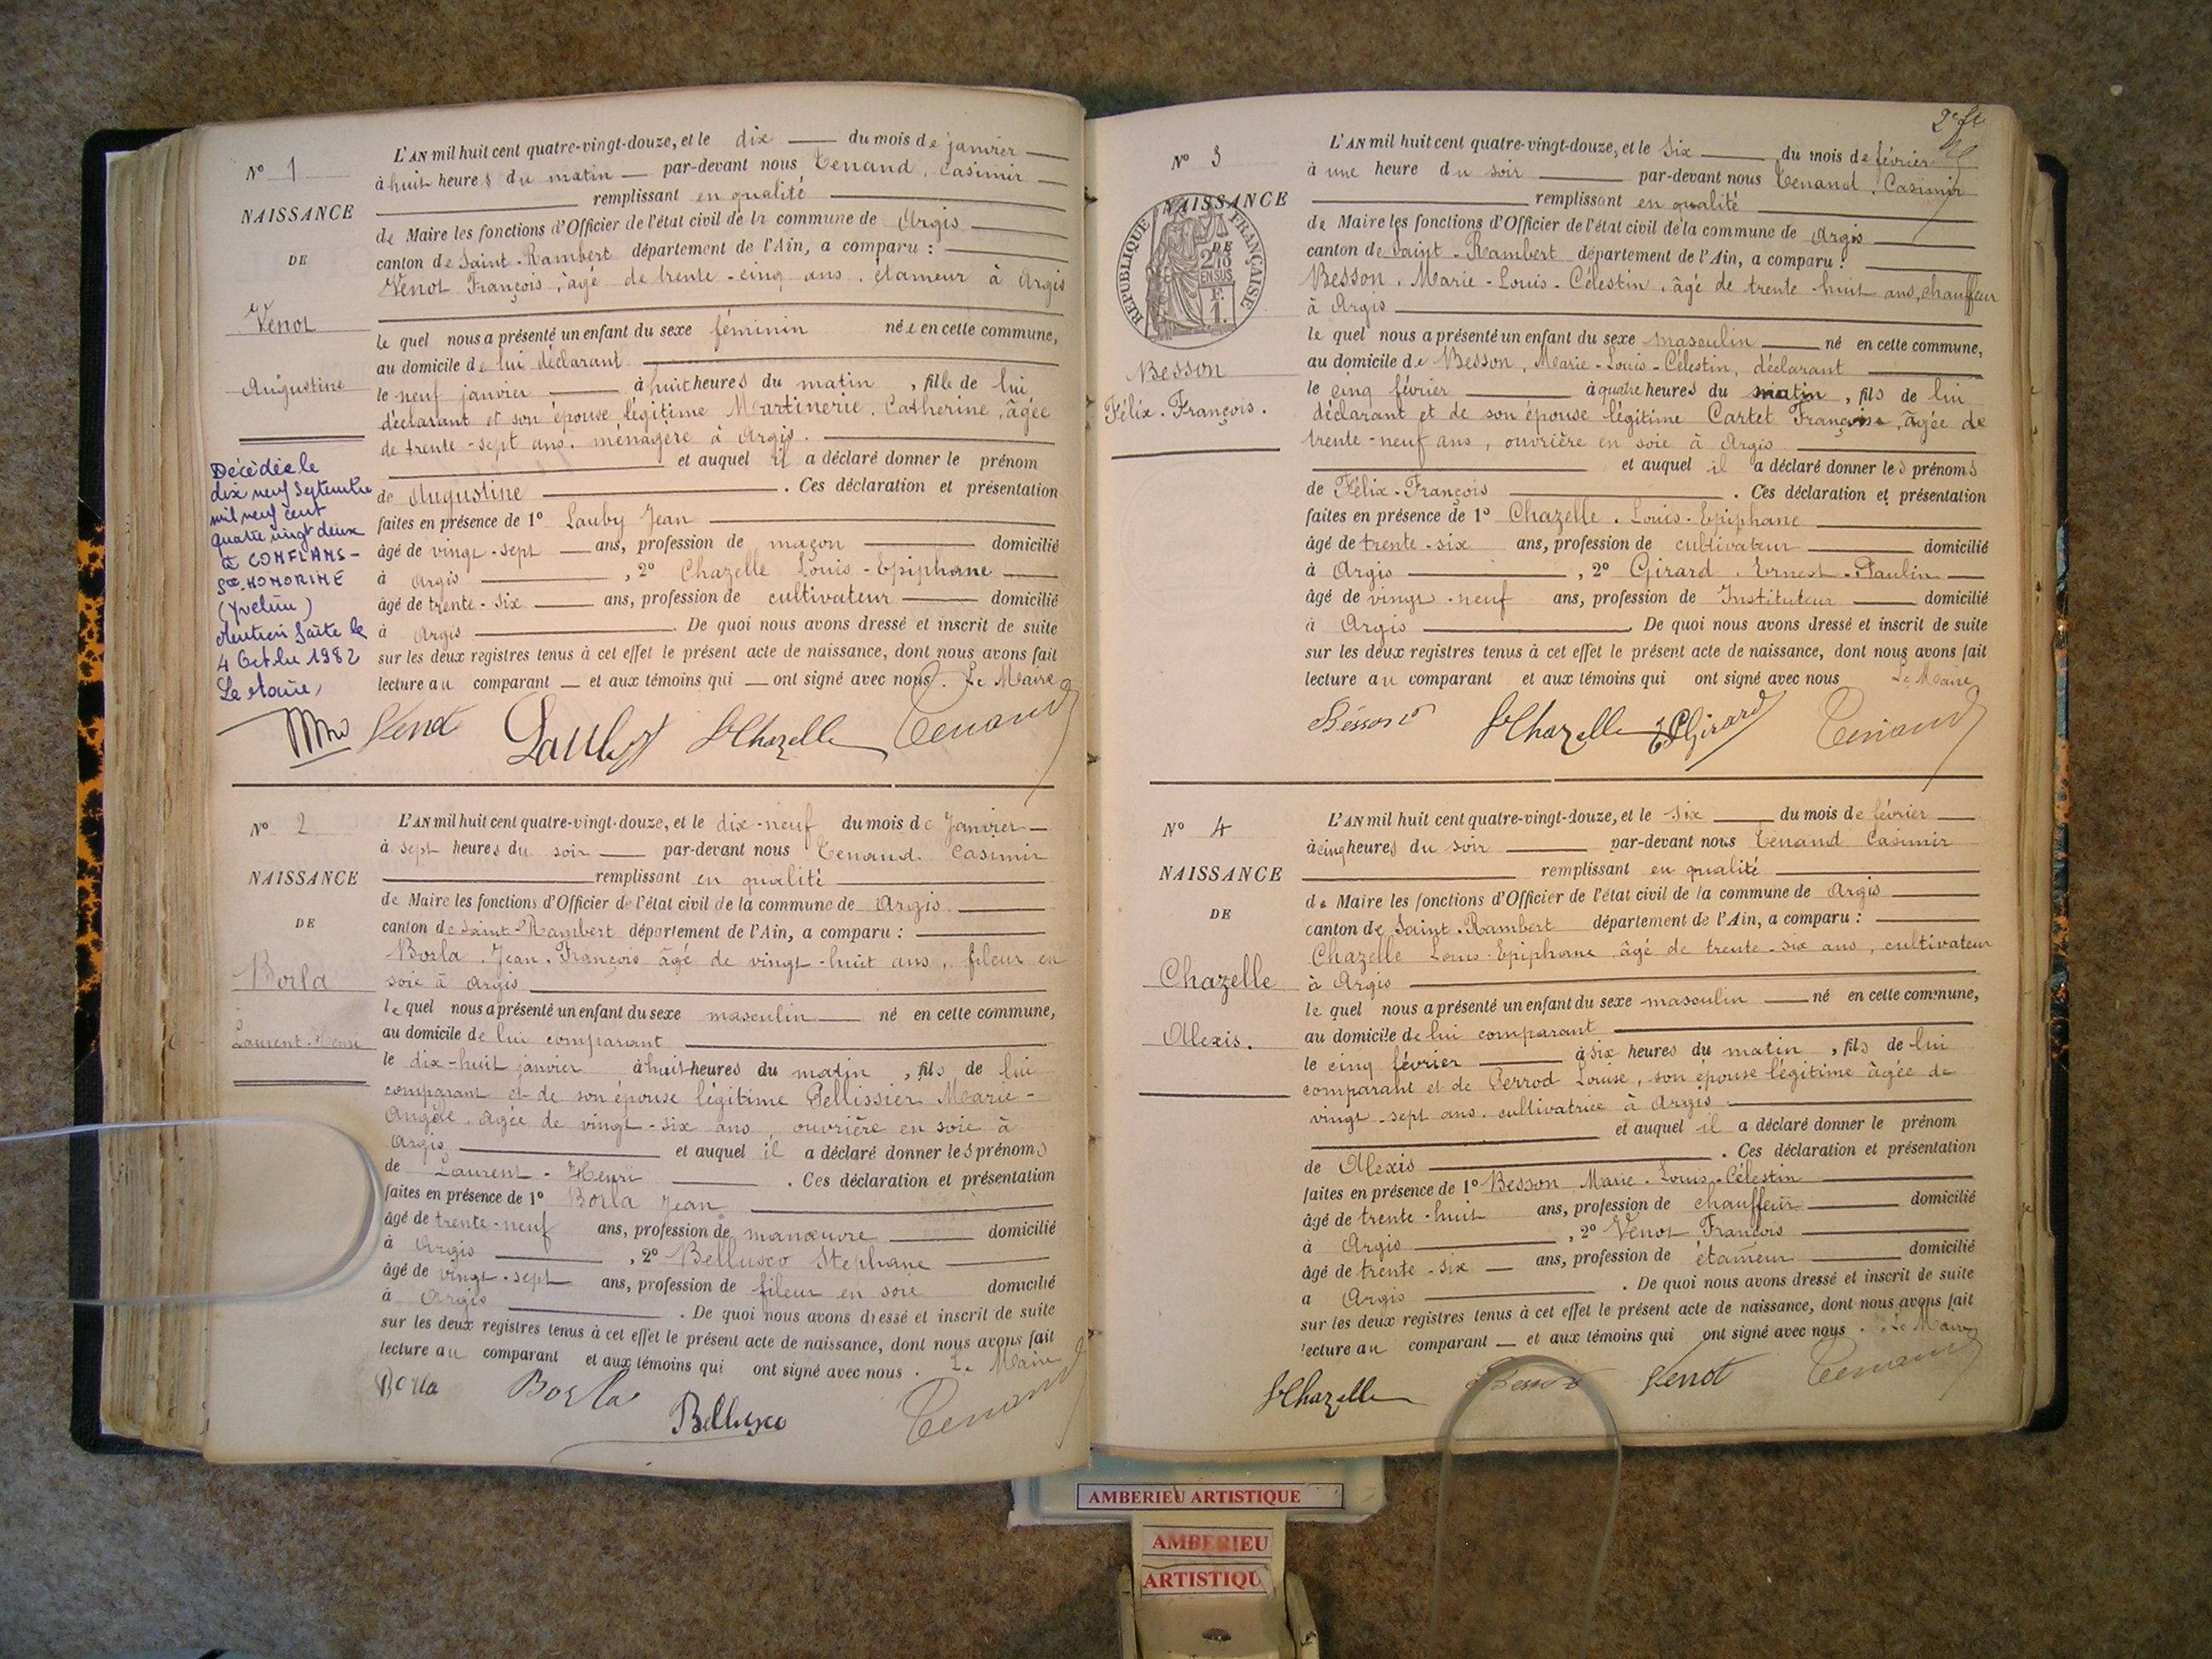 N° 1
NAISSANCE
DE
Venot
Augustine
Décédée le
dix neuf Septembre
mil neuf cent
quatre vingt deux
à CONFLANS-
Ste HONORINE
(Yvelines)
Mention faite le
4 Octobre 1982
Le Maire,
L'AN mil huit cent quatre-vingt-douze, et le dix du mois de janvier
à huit heures du matin par-devant nous Tenand, Casimir
remplissant en qualité
de Maire les fonctions d'Officier de l'état civil de la commune de Argis
canton de Saint-Rambert département de l'Ain, a comparu :
Venot François, âgé de trente-cinq ans, étameur à Argis
le quel nous a présenté un enfant du sexe féminin née en cette commune,
au domicile de lui déclarant
le neuf janvier à huit heures du matin, fille de lui
déclarant et son épouse légitime Martinerie, Catherine, âgée
de trente-sept ans, ménagère à Argis.
et auquel il a déclaré donner le prénom
de Augustine. Ces déclaration et présentation
faites en présence de 1° Lauby Jean
âgé de vingt-sept ans, profession de maçon domicilié
à Argis, 2° Chazelle Louis-Epiphane
âgé de trente-six ans, profession de cultivateur domicilié
à Argis. De quoi nous avons dressé et inscrit de suite
sur les deux registres tenus à cet effet le présent acte de naissance, dont nous avons fait
lecture au comparant et aux témoins qui ont signé avec nous. Le Maire
Venot Lauby LChazelle Tenand
N° 2
NAISSANCE
DE
Borla
Laurent-Henri
L'AN mil huit cent quatre-vingt-douze, et le dix-neuf du mois de Janvier
à sept heures du soir par-devant nous Tenand Casimir
remplissant en qualité
de Maire les fonctions d'Officier de l'état civil de la commune de Argis
canton de Saint-Rambert département de l'Ain, a comparu :
Borla, Jean-François âgé de vingt-huit ans, fileur en
soie à Argis
le quel nous a présenté un enfant du sexe masculin né en cette commune,
au domicile de lui comparant
le dix-huit janvier à huit heures du matin, fils de lui
comparant et de son épouse légitime Pellissier Marie-
Angèle, âgée de vingt-six ans, ouvrière en soie à
Argis et auquel il a déclaré donner les prénoms
de Laurent-Henri. Ces déclaration et présentation
faites en présence de 1° Borla Jean
âgé de trente-neuf ans, profession de manœuvre domicilié
à Argis, 2° Bellusco Stephane
âgé de vingt-sept ans, profession de fileur en soie domicilié
à Argis. De quoi nous avons dressé et inscrit de suite
sur les deux registres tenus à cet effet le présent acte de naissance, dont nous avons fait
lecture au comparant et aux témoins qui ont signé avec nous. Le Maire
Borla Borla Bellusco Tenand
2e ft
N° 3
NAISSANCE
RÉPUBLIQUE FRANÇAISE
2/10 DE
EN SUS
F.
1.
Besson
Félix-François.
L'AN mil huit cent quatre-vingt-douze, et le six du mois de février
à une heure du soir par-devant nous Tenand, Casimir
remplissant en qualité
de Maire les fonctions d'Officier de l'état civil de la commune de Argis
canton de Saint-Rambert département de l'Ain, a comparu :
Besson, Marie-Louis-Célestin, âgé de trente huit ans, chauffeur
à Argis
le quel nous a présenté un enfant du sexe masculin né en cette commune,
au domicile de Besson, Marie-Louis-Célestin, déclarant
le cinq février à quatre heures du matin, fils de lui
déclarant et de son épouse légitime Cartet Françoise, âgée de
trente-neuf ans, ouvrière en soie à Argis
et auquel il a déclaré donner les prénoms
de Félix-François. Ces déclaration et présentation
faites en présence de 1° Chazelle, Louis-Epiphane
âgé de trente-six ans, profession de cultivateur domicilié
à Argis, 2° Girard, Ernest-Paulin
âgé de vingt-neuf ans, profession de Instituteur domicilié
à Argis. De quoi nous avons dressé et inscrit de suite
sur les deux registres tenus à cet effet le présent acte de naissance, dont nous avons fait
lecture au comparant et aux témoins qui ont signé avec nous Le Maire
Besson LChazelle EPGirard Tenand
N° 4
NAISSANCE
DE
Chazelle
Alexis.
L'AN mil huit cent quatre-vingt-douze, et le six du mois de février
à cinq heures du soir par-devant nous Tenand Casimir
remplissant en qualité
de Maire les fonctions d'Officier de l'état civil de la commune de Argis
canton de Saint-Rambert département de l'Ain, a comparu :
Chazelle Louis-Epiphane âgé de trente-six ans, cultivateur
à Argis
le quel nous a présenté un enfant du sexe masculin né en cette commune,
au domicile de lui comparant
le cinq février à six heures du matin, fils de lui
comparant et de Perrod Louise, son épouse légitime âgée de
vingt-sept ans, cultivatrice à Argis
et auquel il a déclaré donner le prénom
de Alexis. Ces déclaration et présentation
faites en présence de 1° Besson Marie-Louis-Célestin
âgé de trente-huit ans, profession de chauffeur domicilié
à Argis, 2° Venot François
âgé de trente-six ans, profession de étameur domicilié
à Argis. De quoi nous avons dressé et inscrit de suite
sur les deux registres tenus à cet effet le présent acte de naissance, dont nous avons fait
lecture au comparant et aux témoins qui ont signé avec nous. Le Maire
LChazelle Besson Venot Tenand
AMBERIEU ARTISTIQUE
AMBERIEU
ARTISTIQU